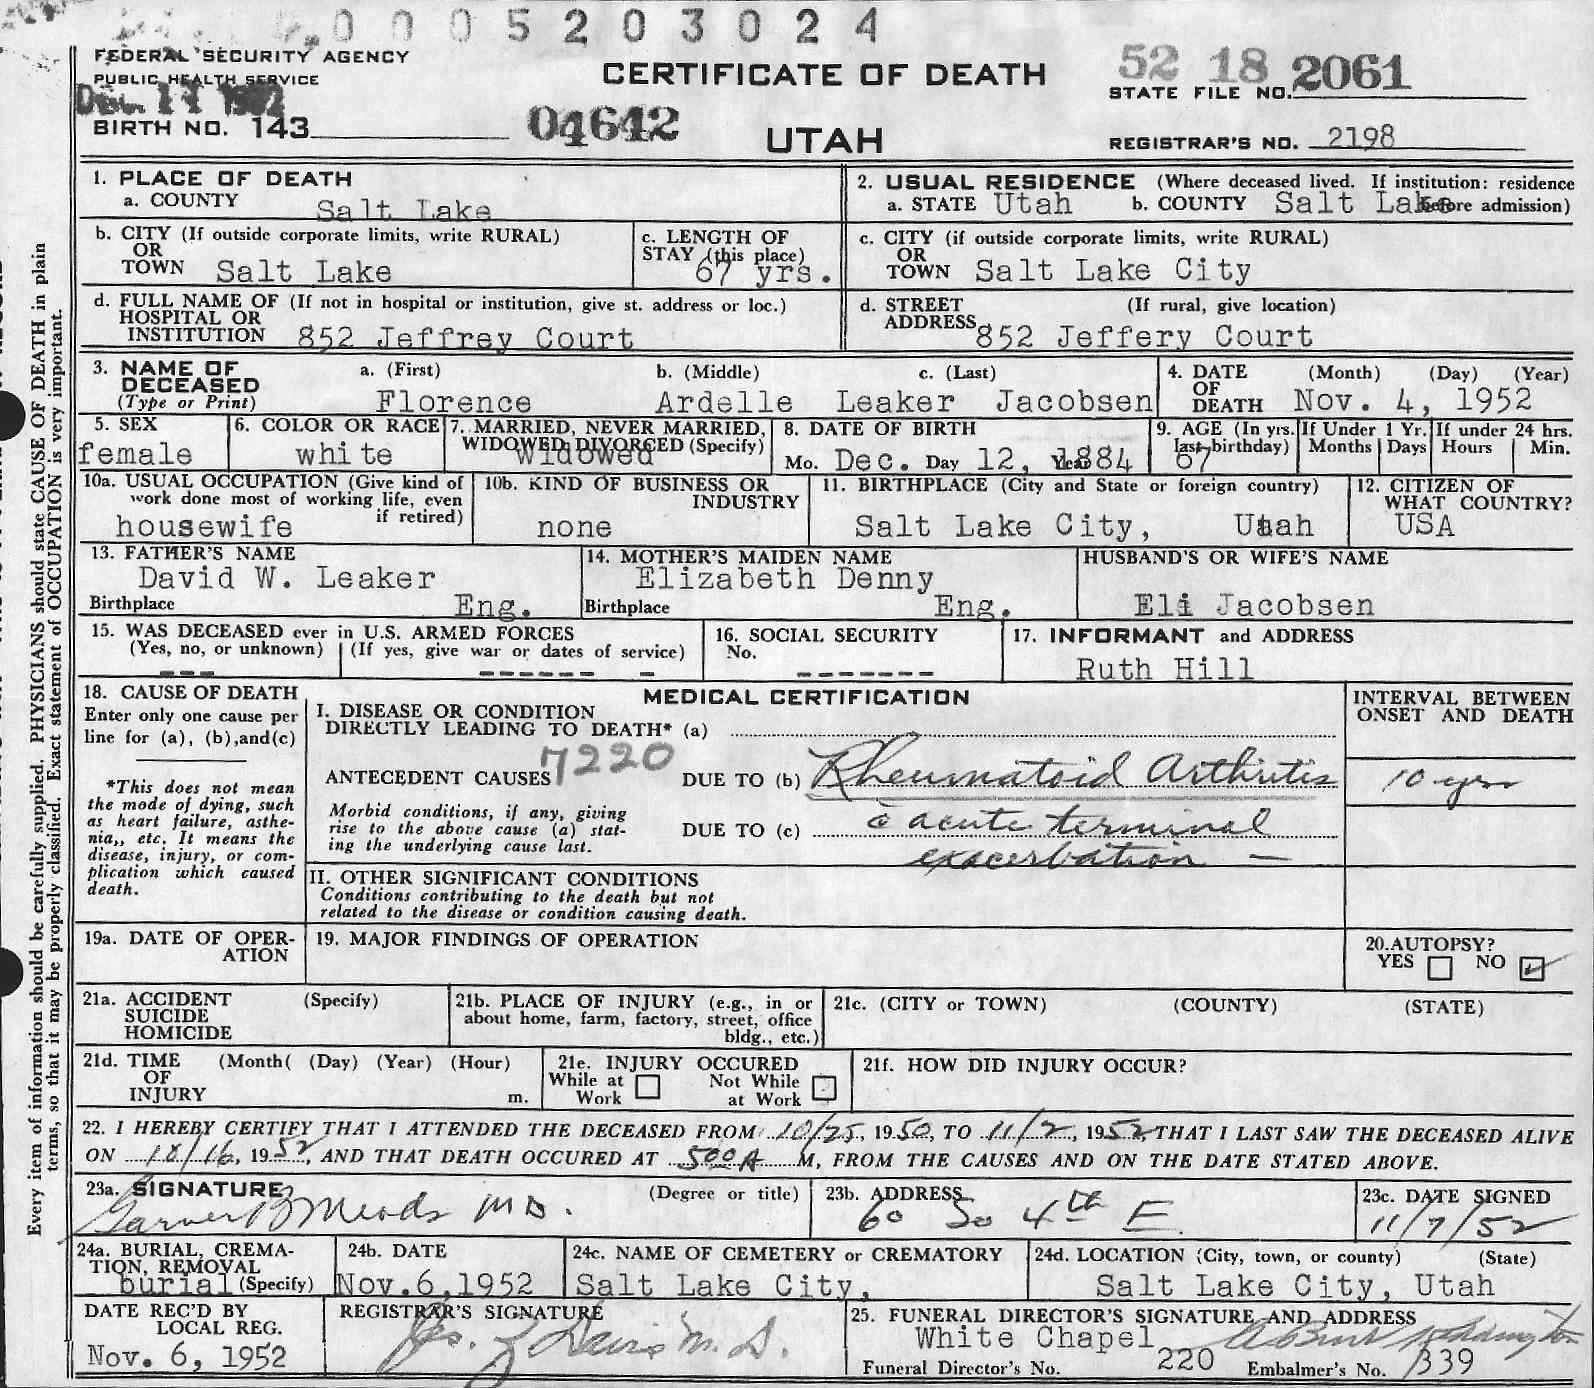 0005203024
FEDERAL SECURITY AGENCY
PUBLIC HEALTH SERVICE
CERTIFICATE OF DEATH
52 18 2061
STATE FILE NO.
BIRTH NO. 143
04642
UTAH
REGISTRAR'S NO. 2198
1. PLACE OF DEATH
a. COUNTY Salt Lake
2. USUAL RESIDENCE (Where deceased lived. If institution: residence before admission)
a. STATE Utah b. COUNTY Salt Lake
b. CITY (If outside corporate limits, write RURAL)
OR
TOWN Salt Lake
c. LENGTH OF
STAY (this place)
67 yrs.
c. CITY (if outside corporate limits, write RURAL)
OR
TOWN Salt Lake City
d. FULL NAME OF (If not in hospital or institution, give st. address or loc.)
HOSPITAL OR
INSTITUTION 852 Jeffrey Court
d. STREET (If rural, give location)
ADDRESS 852 Jeffery Court
3. NAME OF
DECEASED
(Type or Print)
a. (First) b. (Middle) c. (Last)
Florence Ardelle Leaker Jacobsen
4. DATE (Month) (Day) (Year)
OF
DEATH Nov. 4, 1952
5. SEX
female
6. COLOR OR RACE
white
7. MARRIED, NEVER MARRIED,
WIDOWED DIVORCED (Specify)
Widowed
8. DATE OF BIRTH
Mo. Dec. Day 12, Year 1884
9. AGE (In yrs. last birthday)
67
If Under 1 Yr.
Months Days
If under 24 hrs.
Hours Min.
10a. USUAL OCCUPATION (Give kind of
work done most of working life, even
if retired)
housewife
10b. KIND OF BUSINESS OR
INDUSTRY
none
11. BIRTHPLACE (City and State or foreign country)
Salt Lake City, Utah
12. CITIZEN OF
WHAT COUNTRY?
USA
13. FATHER'S NAME
David W. Leaker
Birthplace Eng.
14. MOTHER'S MAIDEN NAME
Elizabeth Denny
Birthplace Eng.
HUSBAND'S OR WIFE'S NAME
Eli Jacobsen
15. WAS DECEASED ever in U.S. ARMED FORCES
(Yes, no, or unknown) (If yes, give war or dates of service)
--- ------ -
16. SOCIAL SECURITY
No.
-------
17. INFORMANT and ADDRESS
Ruth Hill
18. CAUSE OF DEATH
Enter only one cause per
line for (a), (b),and(c)
*This does not mean
the mode of dying, such
as heart failure, asthe-
nia,, etc. It means the
disease, injury, or com-
plication which caused
death.
MEDICAL CERTIFICATION
INTERVAL BETWEEN
ONSET AND DEATH
I. DISEASE OR CONDITION
DIRECTLY LEADING TO DEATH* (a)
7220
ANTECEDENT CAUSES DUE TO (b) Rheumatoid Arthritis 10 yrs
Morbid conditions, if any, giving
rise to the above cause (a) stat-
ing the underlying cause last.
DUE TO (c) c̄ acute terminal
exacerbation —
II. OTHER SIGNIFICANT CONDITIONS
Conditions contributing to the death but not
related to the disease or condition causing death.
19a. DATE OF OPER-
ATION
19. MAJOR FINDINGS OF OPERATION
20.AUTOPSY?
YES NO
21a. ACCIDENT (Specify)
SUICIDE
HOMICIDE
21b. PLACE OF INJURY (e.g., in or
about home, farm, factory, street, office
bldg., etc.)
21c. (CITY or TOWN) (COUNTY) (STATE)
21d. TIME (Month( (Day) (Year) (Hour)
OF
INJURY m.
21e. INJURY OCCURED
While at Work Not While at Work
21f. HOW DID INJURY OCCUR?
22. I HEREBY CERTIFY THAT I ATTENDED THE DECEASED FROM 10/25, 1950, TO 11/2, 1952, THAT I LAST SAW THE DECEASED ALIVE
ON 10/16, 1952, AND THAT DEATH OCCURED AT 500A M, FROM THE CAUSES AND ON THE DATE STATED ABOVE.
23a. SIGNATURE (Degree or title)
Garner B Meads M D.
23b. ADDRESS
60 So 4th E
23c. DATE SIGNED
11/7/52
24a. BURIAL, CREMA-
TION, REMOVAL
burial (Specify)
24b. DATE
Nov.6,1952
24c. NAME OF CEMETERY or CREMATORY
Salt Lake City,
24d. LOCATION (City, town, or county) (State)
Salt Lake City, Utah
DATE REC'D BY
LOCAL REG.
Nov. 6, 1952
REGISTRAR'S SIGNATURE
M. D.
25. FUNERAL DIRECTOR'S SIGNATURE AND ADDRESS
White Chapel
Funeral Director's No. 220
Embalmer's No. 339
Every item of information should be carefully supplied. PHYSICIANS should state CAUSE OF DEATH in plain
terms, so that it may be properly classified. Exact statement of OCCUPATION is very important.